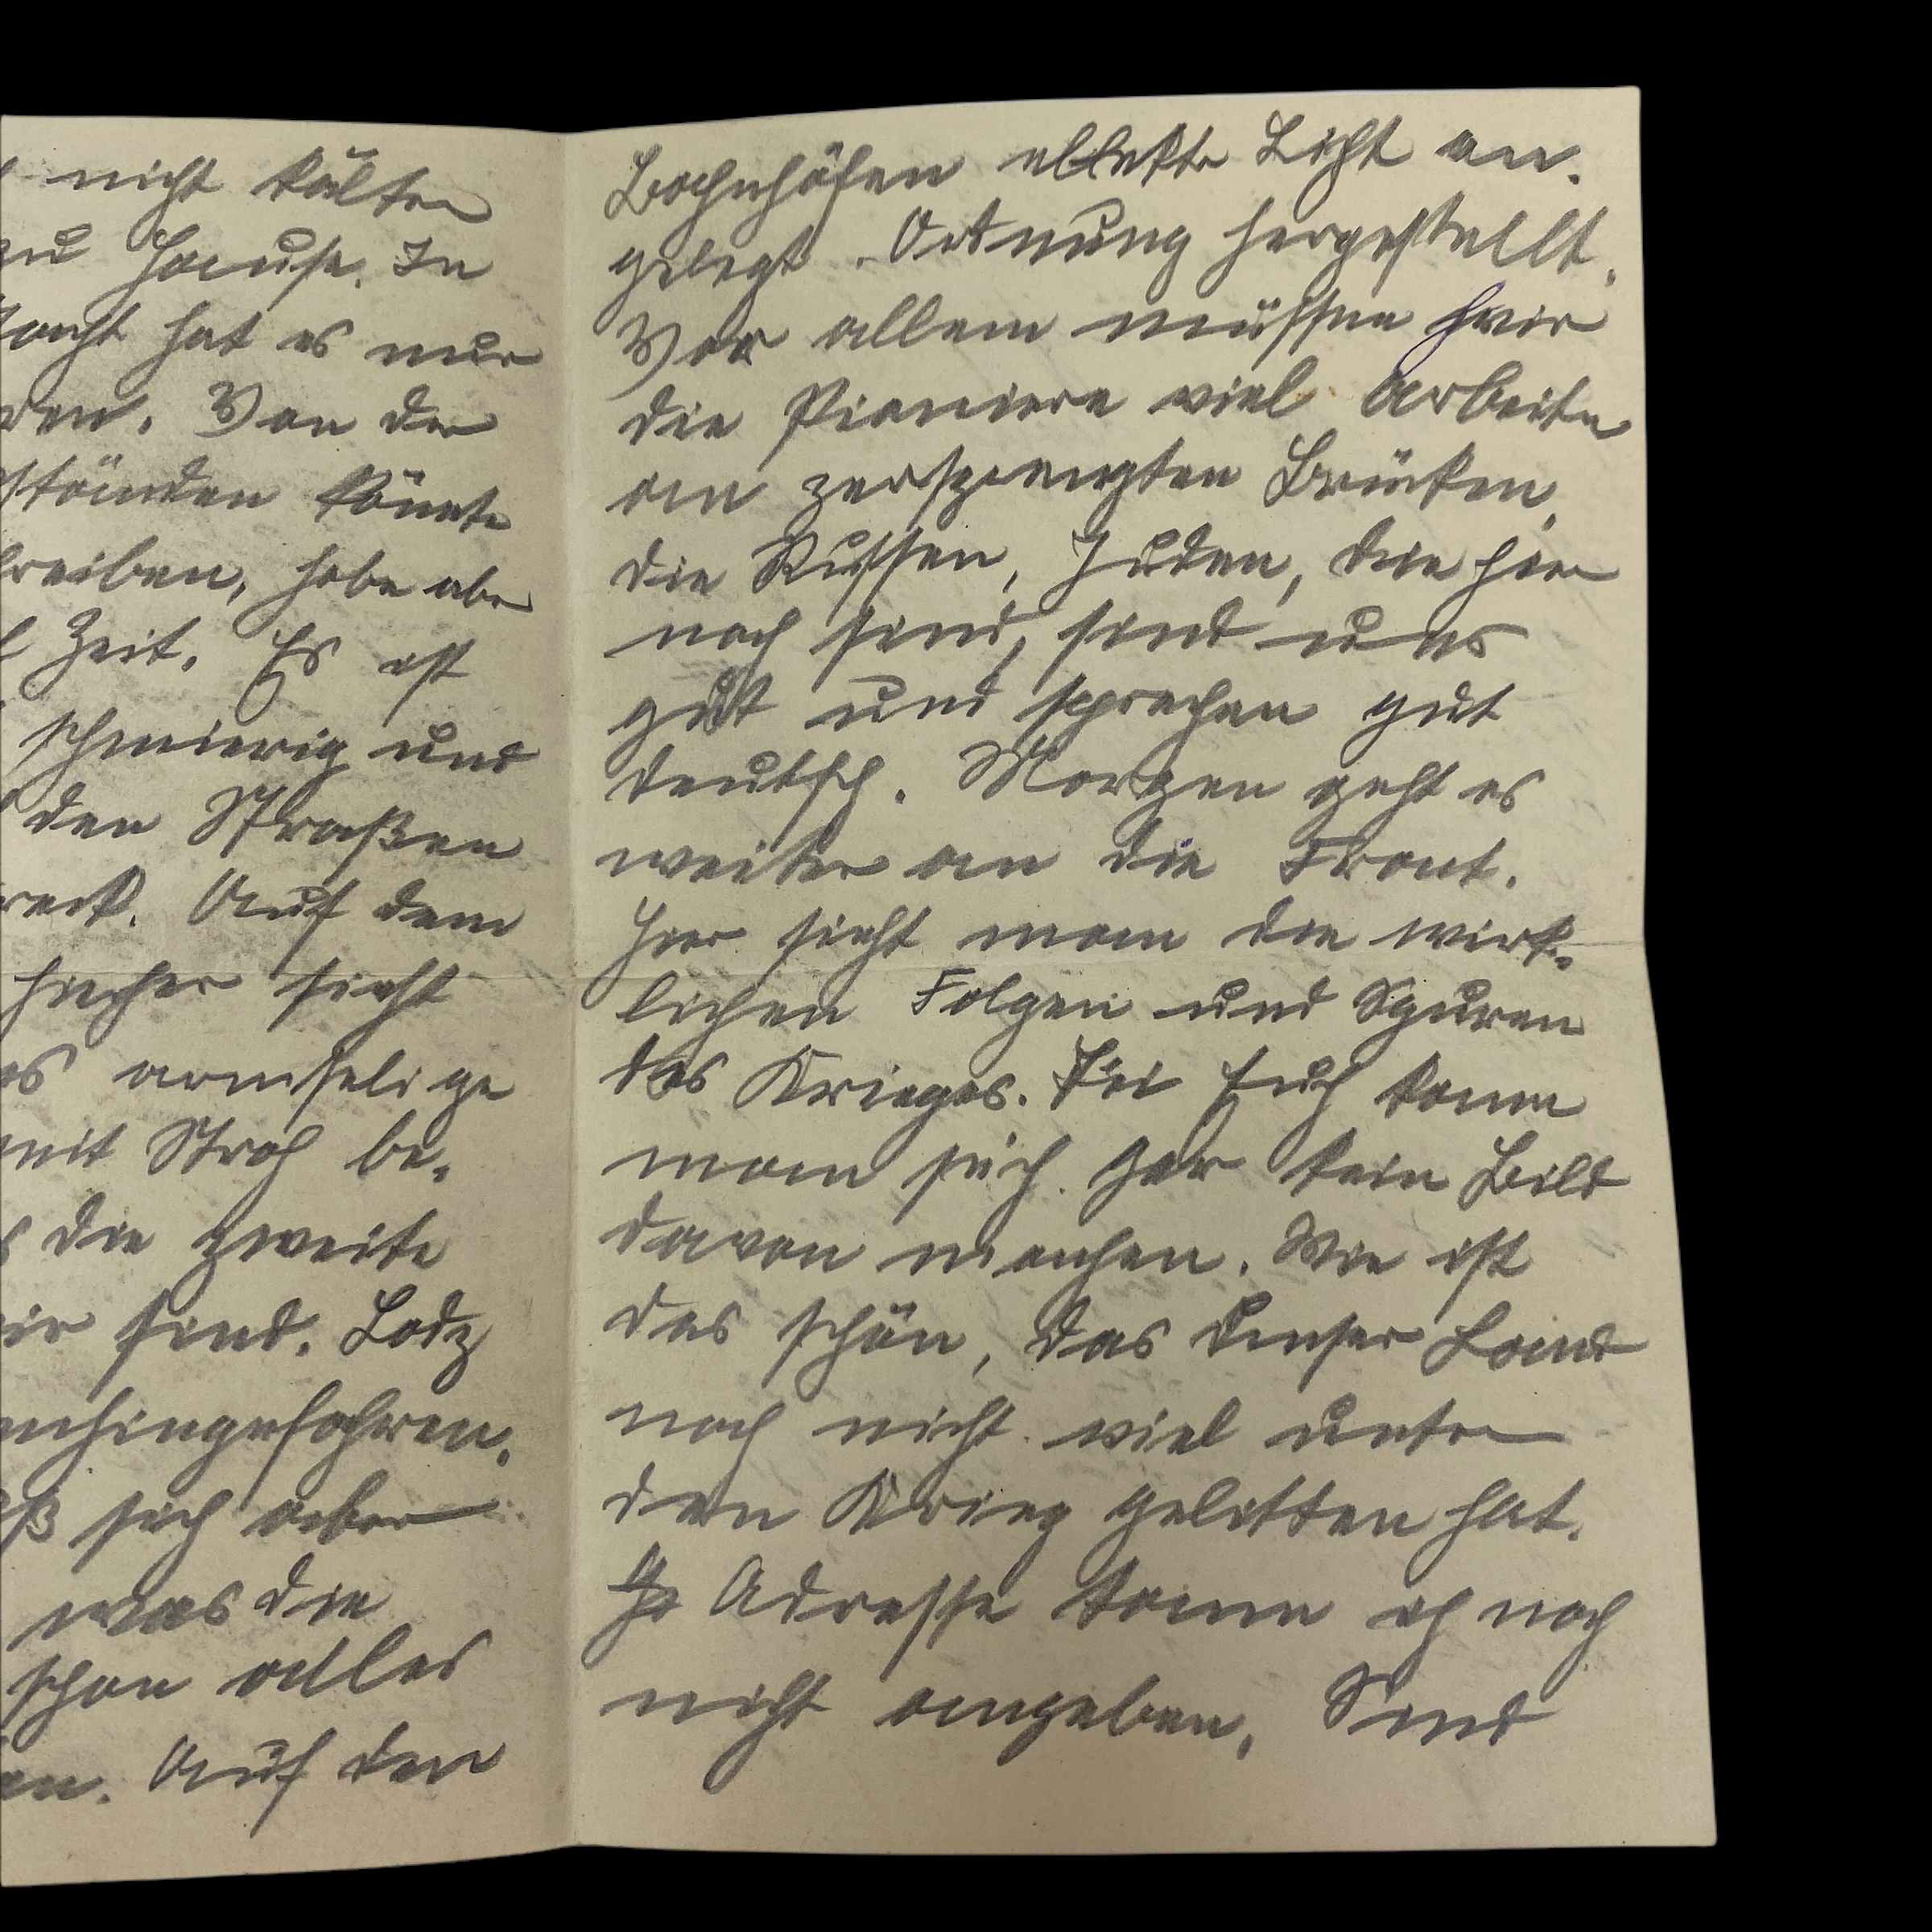 nicht kälter
zu Hause. In
Nacht hat es nur
Von der
ständen könnte
schreiben, habe aber
Zeit. Es ist
schmierig und
den Straßen
Dreck. Auf dem
hierher sieht
armselige
mit Stroh be-
die zweite
wir sind. Lodz
hingefahren.
sich aber
was die
schon alles
Auf den
Bahnhöfen ellektr Licht an-
gelegt. Ordnung hergestellt.
Vor allem müssen hier
die Pioniere viel Arbeiten
an zersprengten Brücken.
Die Russen, Juden, die hier
noch sind, sind uns
gut und sprechen gut
deutsch. Morgen geht es
weiter an die Front.
Hier sieht man die wirk-
lichen Folgen und Spuren
des Krieges. Bei Euch kann
man sich gar kein Bild
davon machen. Wie ist
das schön, das Unser Land
noch nicht viel unter
den Krieg gelitten hat.
Adresse kann ich noch
nicht angeben. Sind